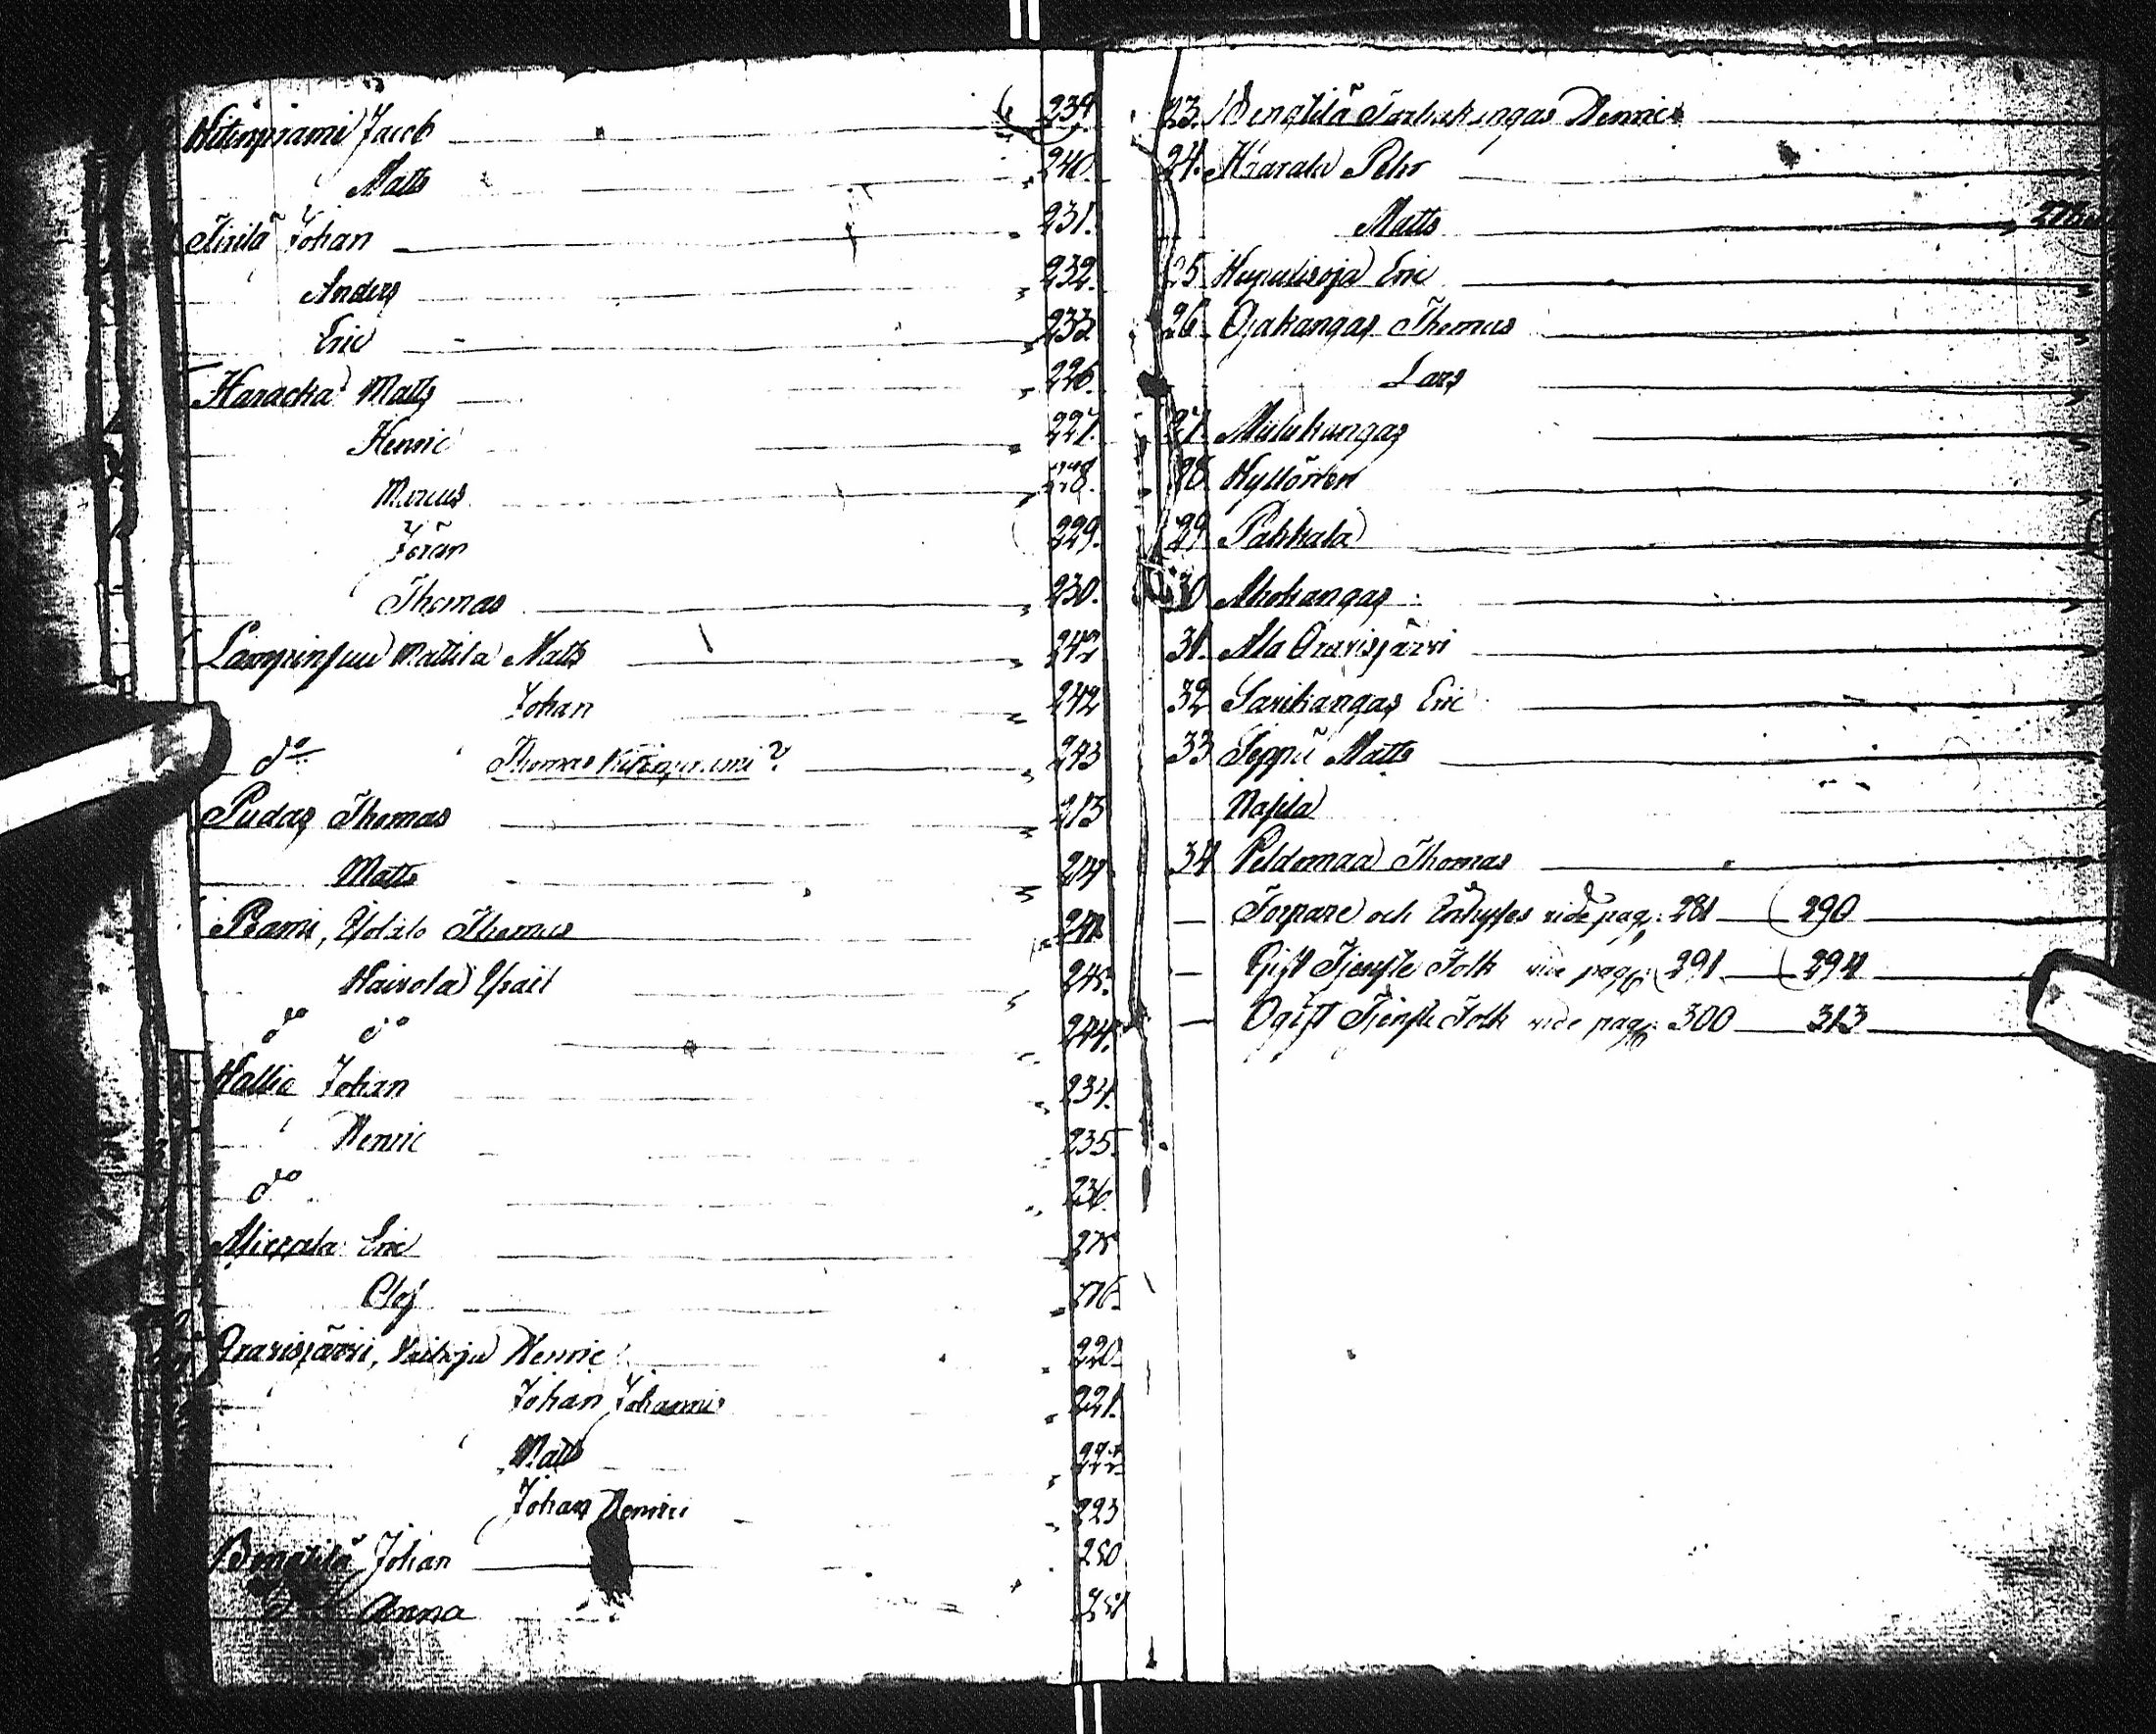 Jacob 239.
Matts 240.
Tirilä Johan 231.
Anders 232.
Eric 233
Haracka Matts 226.
Henric 227.
Marcus 228.
Jöran 229.
Thomas 230.
Mattila Matts 242
Johan 242
do Thomas 243
Pudas Thomas 213
Matts 214
Peami, Thomas
245.
do do 244.
Hallia Johan 234.
Henric 235.
do 236.
Eric 275
Olof 276.
Oravisjärvi, Henric 220.
Johan Johannis 221.
Matts 222
Johan Henrici 223
Bengtilä Johan 250
Anna
23. Bengtilä Henric
24. Haarala Pehr
Matts
25 Eric
26. Ojakangas Thomas
Lars
27. Mulukangas
28.
29. Pakkala
30 Ahokangas
31. Ala Oravisjärvi
32 Sarikangas Eric
33 Seppä Matts
34 Peldomaa Thomas
— Torpare och Inhyses vide pag: 281 — 290
— Gift Tjenste Folk vide pag: 291 — 294
— Ogift Tjenste Folk vide pag: 300 — 313